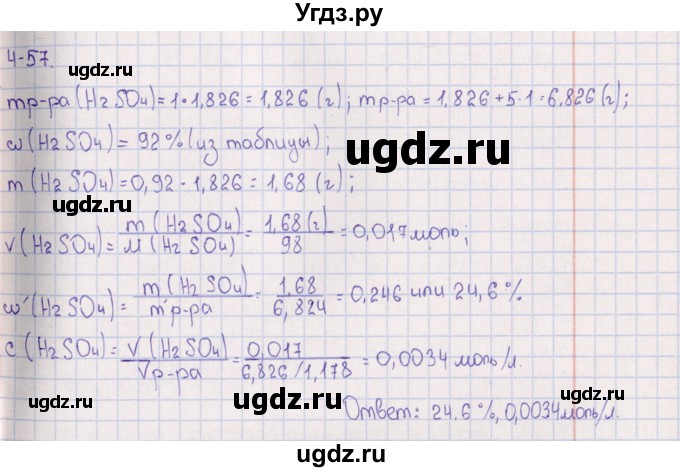 Угдз.ру
4-57.
ugdz.ru ugdz.ru
mр-ра (H2SO4) = 1 · 1,826 = 1,826 (г); mр-ра = 1,826 + 5·1 = 6,826 (г);
ω (H2SO4) = 92% (из таблицы);
ugdz.ru
m (H2SO4) = 0,92 · 1,826 = 1,68 (г);
ugdz.ru ugdz.ru
ν (H2SO4) = m (H2SO4) / M (H2SO4) = 1,68 (г) / 98 = 0,017 моль;
ugdz.ru
ω' (H2SO4) = m (H2SO4) / m'р-ра = 1,68 / 6,824 = 0,246 или 24,6 %
ugdz.ru
c (H2SO4) = ν (H2SO4) / Vр-ра = 0,017 / 6,826/1,178 = 0,0034 моль/л.
ugdz.ru
Ответ: 24.6 %, 0,0034 моль/л.
ugdz.ru ugdz.ru